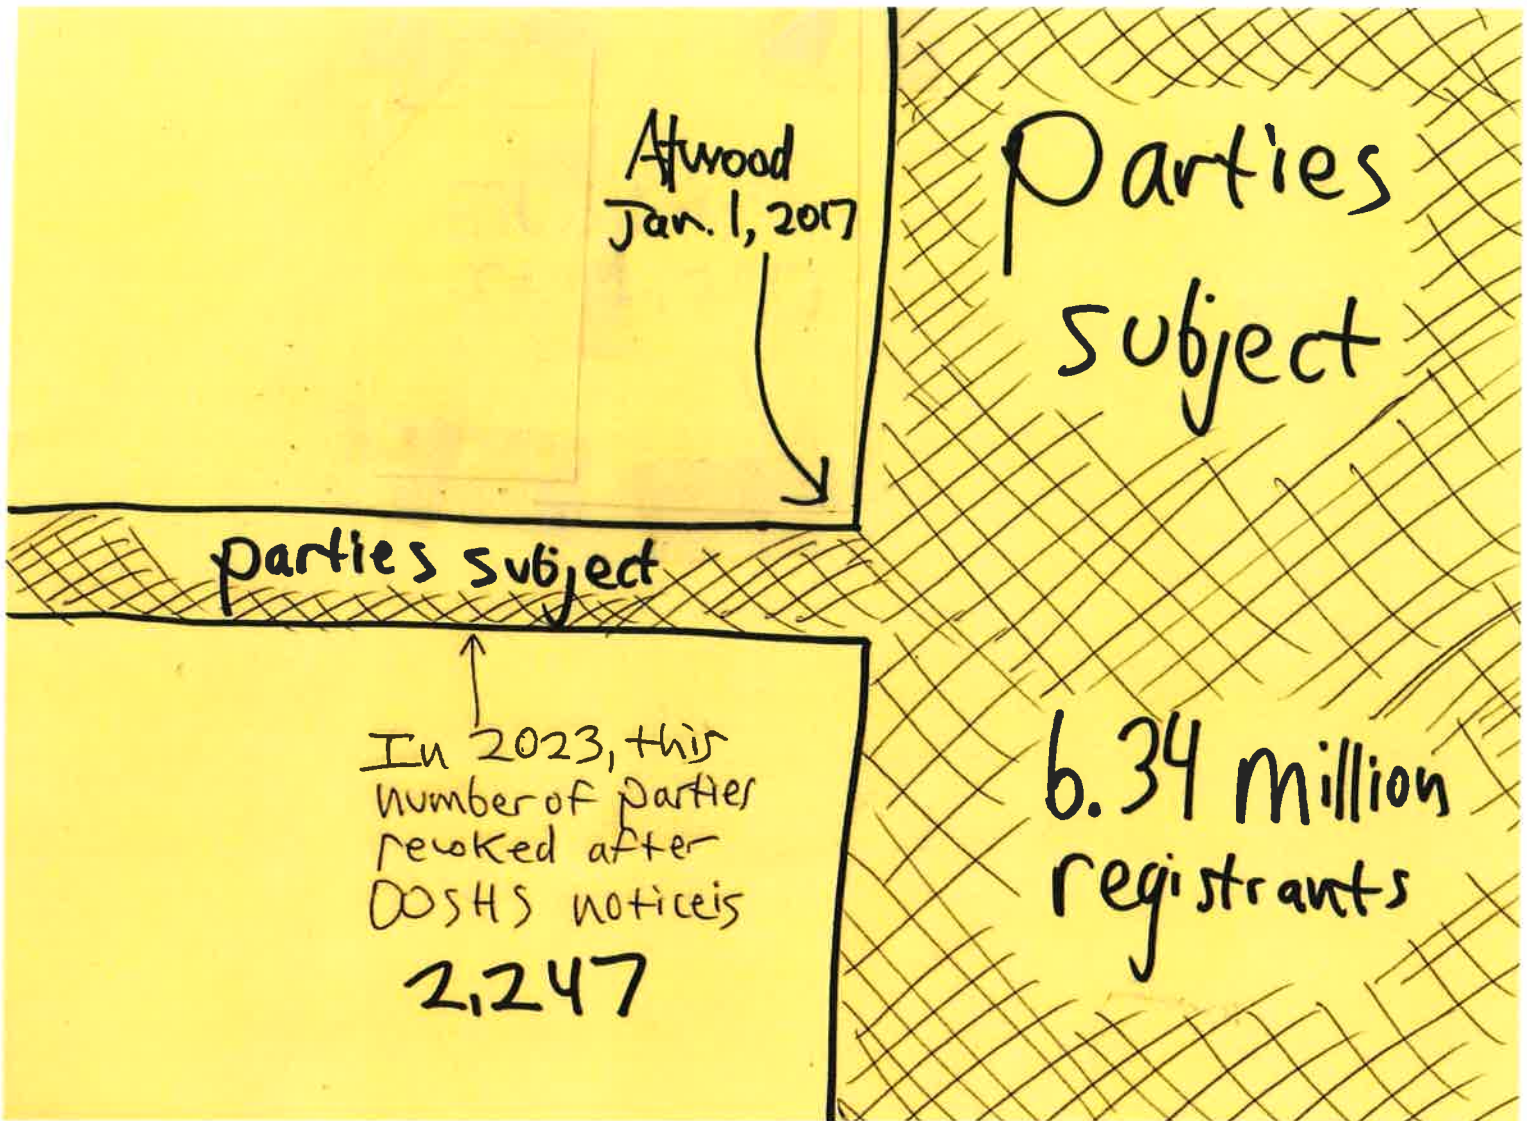 Atwood
Jan. 1, 2017
Parties
subject
parties subject
In 2023, this
number of parties
revoked after
OOSHS noticeis
2,247
6.34 million
registrants